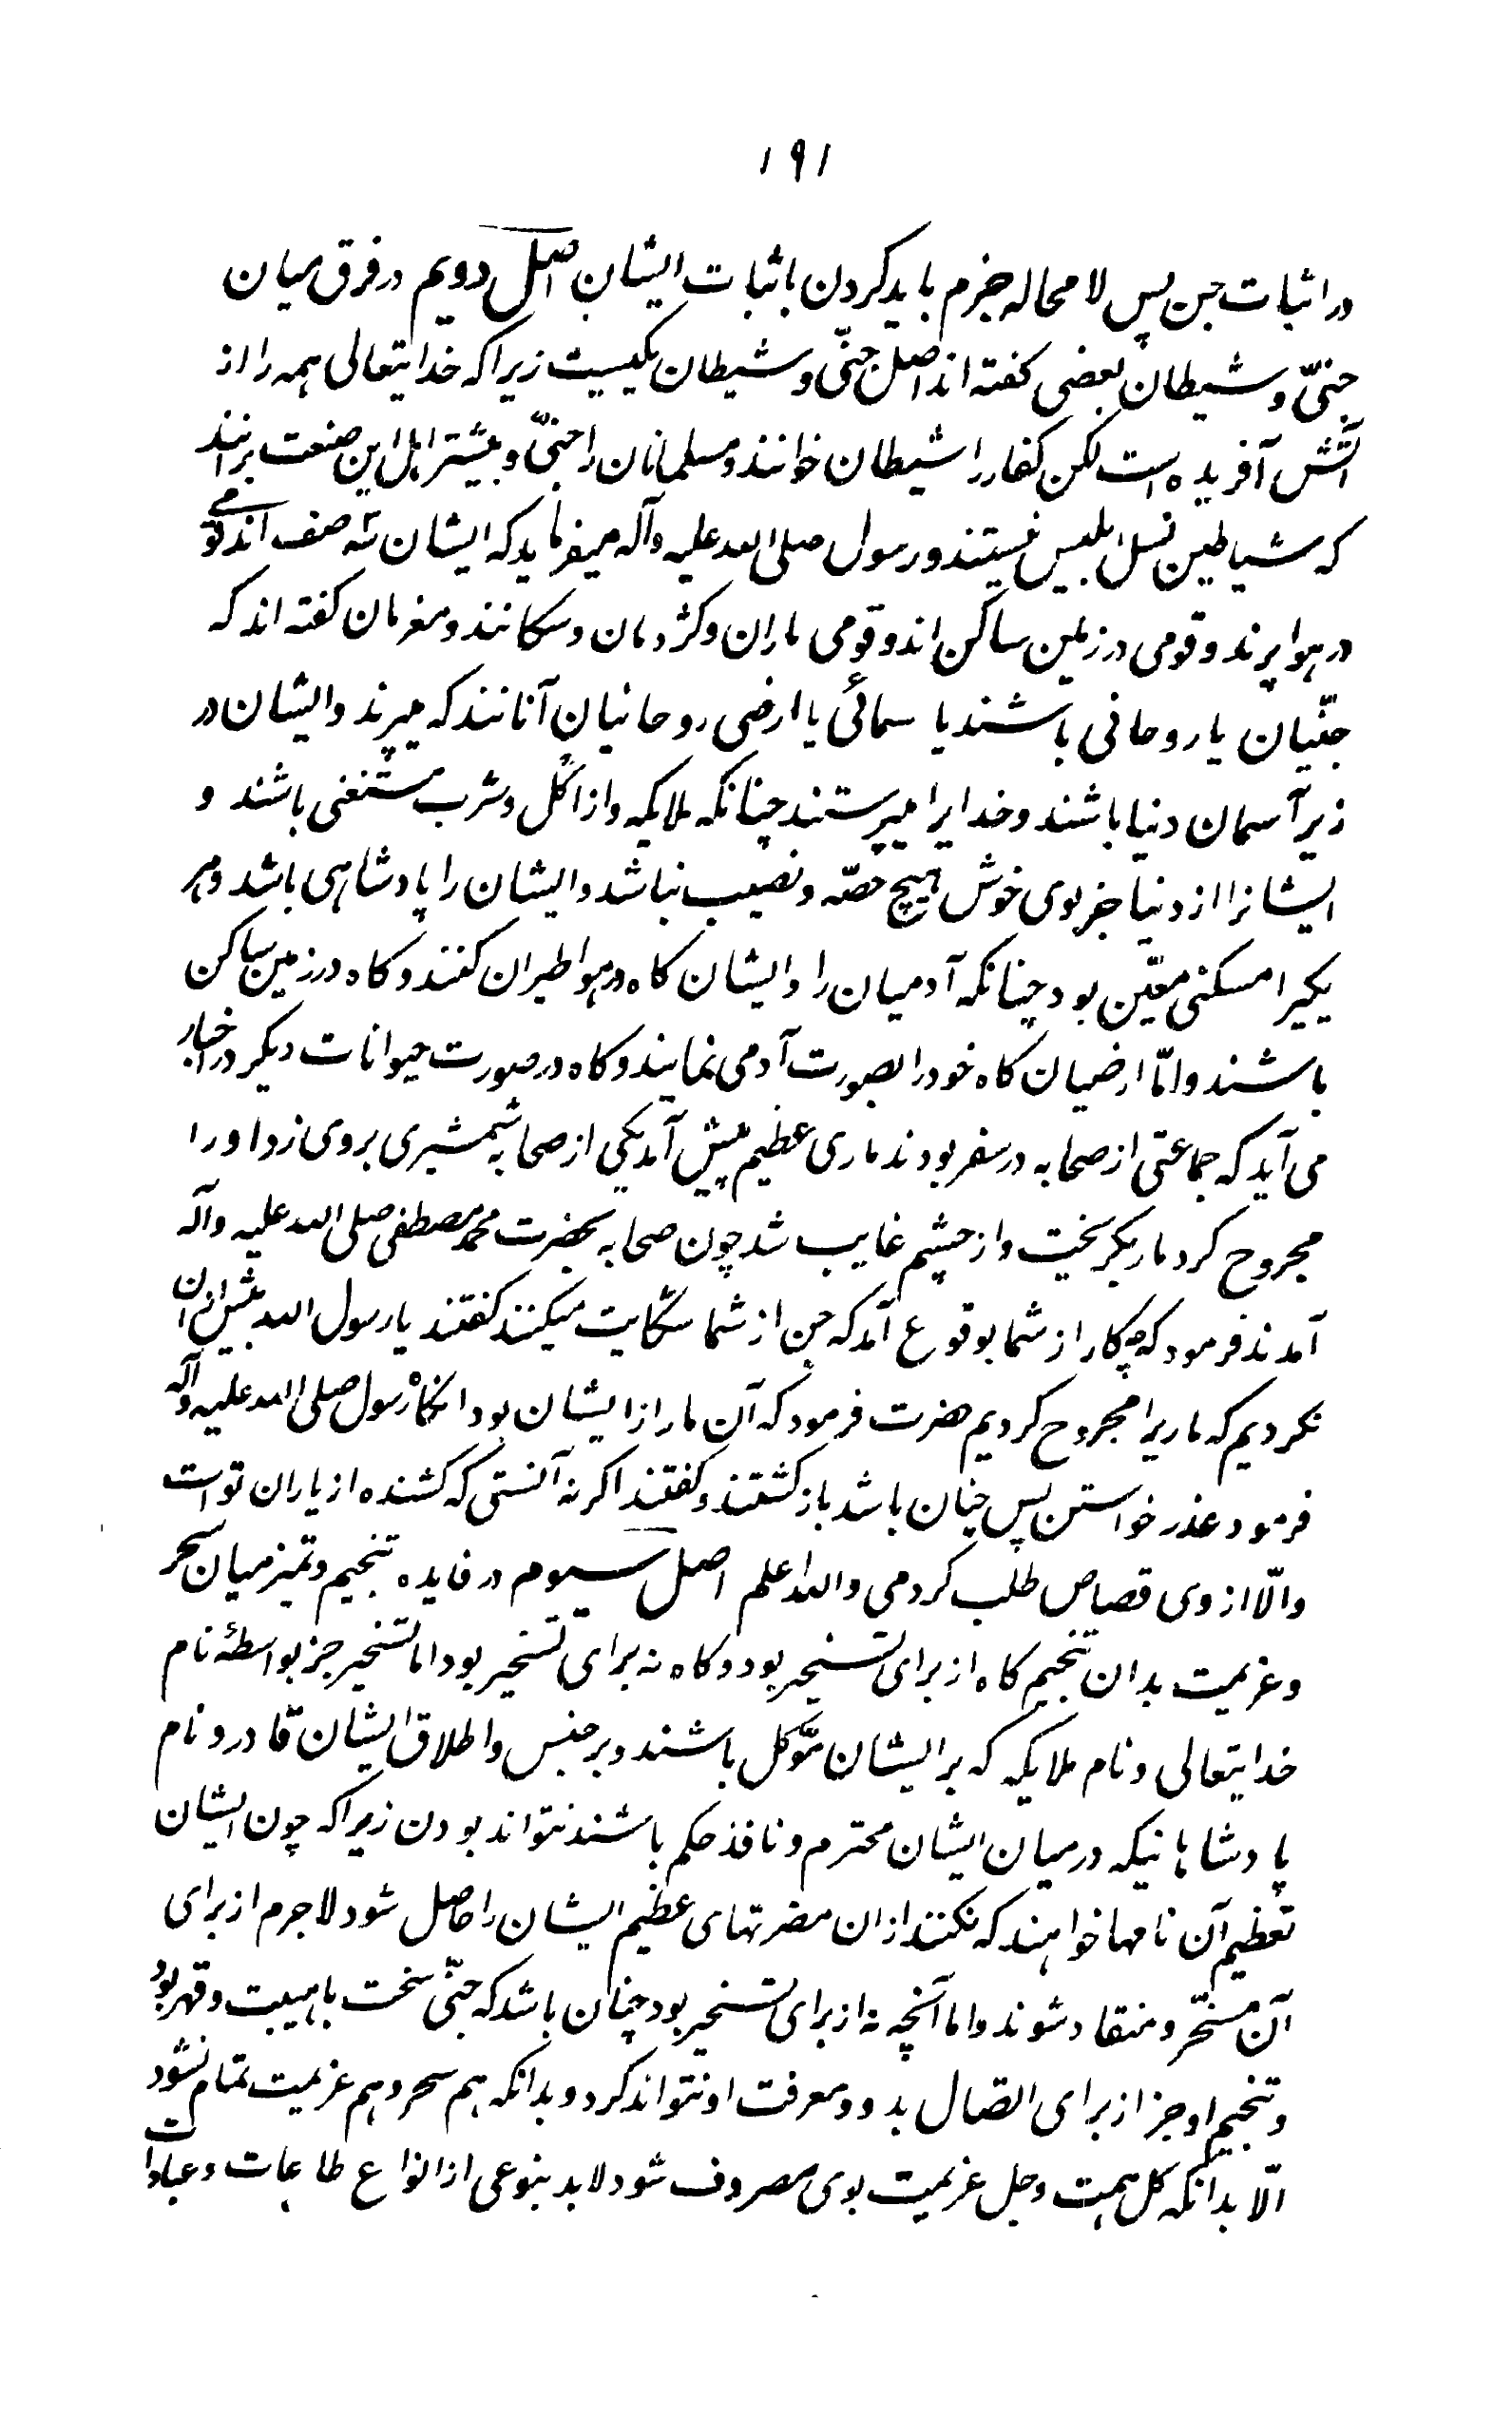 ۱۹۱
در اثبات جن پس لا محاله جزم باید کردن باثبات ایشان اصل دویم در فرق میان
جنّی و شیطان بعضی کفته اند اصل جنّی و شیطان یکیست زیرا که خدایتعالی همه را از
آتش آفریده است لکن کفار را شیطان خوانند و مسلمانان را جنّی و بیشتر اهل این صنعت برانند
که شیاطین نسل ابلیس نیستند و رسول صلی الله علیه و آله میفرماید که ایشان سه صنف اند قومی
در هوا پرند و قومی در زمین ساکن اند و قومی ماران و کژدمان و سکانند و مغرمان کفته اند که
جنّیان یا روحانی باشند یا سمائی یا ارضی روحانیان آنانند که میپرند و ایشان در
زیر آسمان دنیا باشند و خدایرا میپرستند چنانکه ملایکه و از اکل و شرب مستغنی باشند و
ایشانرا از دنیا جز بوی خوش هیچ حصّه و نصیب نباشد و ایشان را پادشاهی باشد و هر
یکیرا مسکنی معیّن بود چنانکه آدمیان را و ایشان کاه در هوا طیران کنند و کاه در زمین ساکن
باشند و امّا ارضیان کاه خود را بصورت آدمی نمایند و کاه در صورت حیوانات دیکر در اخبار
می آید که جماعتی از صحابه در سفر بودند ماری عظیم پیش آمد یکی از صحابه شمشیری بروی زد او را
مجروح کرد مار بکریخت و از چشم غایب شد چون صحابه بحضرت محمد مصطفی صلی الله علیه و آله
آمدند فرمود که چکار از شما بوقوع آمد که جن از شما شکایت میکنند کفتند یا رسول الله بیش از آن
نکردیم که ماریرا مجروح کردیم حضرت فرمود که آن مار از ایشان بود انکاه رسول صلی الله علیه و آله
فرمود عذر خواستن پس چنان باشد باز کشتند و کفتند اکر نه آنستی که کشنده از یاران تو است
و الّا از وی قصاص طلب کردمی و الله اعلم اصل سیوم در فایده تنجیم و تمیز میان سحر
و عزیمت بدان تنجیم کاه از برای تسخیر بود و کاه نه برای تسخیر بود اما تسخیر جز بواسطۀ نام
خدایتعالی و نام ملایکه که بر ایشان موّکل باشند و بر حبس و اطلاق ایشان قادر و نام
پادشاهانیکه در میان ایشان محترم و نافذ حکم باشند نتواند بودن زیرا که چون ایشان
تعظیم آن نامها خواهند که نکنند از ان مضرتهای عظیم ایشان را حاصل شود لاجرم از برای
آن مسخّر و منقاد شوند و اما آنچه نه از برای تسخیر بود چنان باشد که جنّی سخت باهیبت و قهر بود
و تنجیم او جز از برای اتصال بدو و معرفت او نتواند کرد و بدانکه هم سحر و هم عزیمت تمام نشود
الّا بدانکه کل همت و جل عزیمت بوی مصروف شود لابد بنوعی از انواع طاعات و عبادات